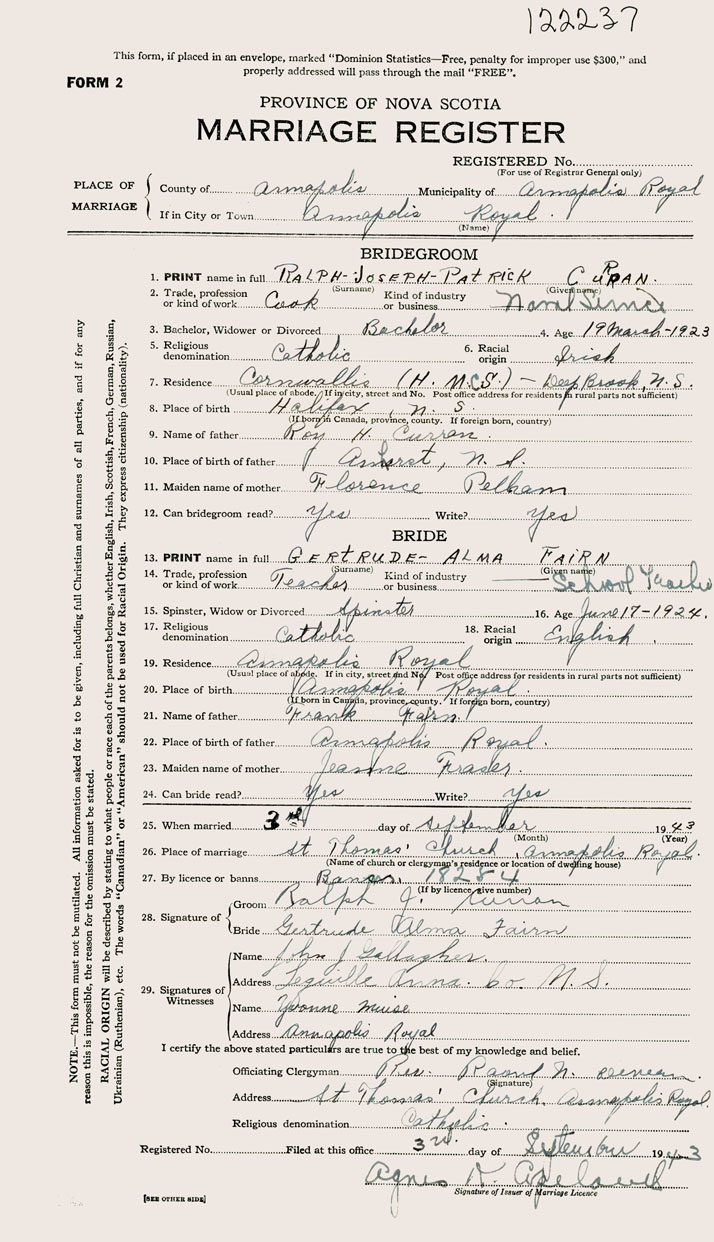 122237
This form, if placed in an envelope, marked “Dominion Statistics—Free, penalty for improper use $300,” and
properly addressed will pass through the mail “FREE”.
FORM 2
PROVINCE OF NOVA SCOTIA
MARRIAGE REGISTER
REGISTERED No.
(For use of Registrar General only)
PLACE OF MARRIAGE
County of Annapolis Municipality of Annapolis Royal
If in City or Town Annapolis Royal.
(Name)
BRIDEGROOM
1. PRINT name in full RALPH-JOSEPH-PATRICK CURRAN.
(Surname) (Given name)
2. Trade, profession or kind of work Cook Kind of industry or business Naval Service
3. Bachelor, Widower or Divorced Bachelor 4. Age 19 March-1923
5. Religious denomination Catholic 6. Racial origin Irish
7. Residence Cornwallis (H.M.C.S.) — Deep Brook, N.S.
(Usual place of abode. If in city, street and No. Post office address for residents in rural parts not sufficient)
8. Place of birth Halifax, N.S.
(If born in Canada, province, county. If foreign born, country)
9. Name of father Roy H. Curran.
10. Place of birth of father Amherst, N.S.
11. Maiden name of mother Florence Pelham
12. Can bridegroom read? Yes Write? Yes
BRIDE
13. PRINT name in full GERTRUDE- ALMA FAIRN
(Surname) (Given name)
14. Trade, profession or kind of work Teacher Kind of industry or business School Teacher
15. Spinster, Widow or Divorced Spinster 16. Age June 17-1924.
17. Religious denomination Catholic 18. Racial origin English.
19. Residence Annapolis Royal
(Usual place of abode. If in city, street and No. Post office address for residents in rural parts not sufficient)
20. Place of birth Annapolis Royal.
(If born in Canada, province, county. If foreign born, country)
21. Name of father Frank Fairn.
22. Place of birth of father Annapolis Royal.
23. Maiden name of mother Jeanne Fraser.
24. Can bride read? Yes Write? Yes
25. When married 3rd day of September 1943
(Month) (Year)
26. Place of marriage St Thomas' Church Annapolis Royal.
(Name of church or clergyman's residence or location of dwelling house)
27. By licence or banns Banns. 18284
(If by licence give number)
28. Signature of
Groom Ralph J. Curran
Bride Gertrude Alma Fairn
29. Signatures of Witnesses
Name John J Gallagher.
Address Lequille Anna. Co. N.S.
Name Yvonne Muise
Address Annapolis Royal
I certify the above stated particulars are true to the best of my knowledge and belief.
Officiating Clergyman Rev. Raoul N.
(Signature)
Address St Thomas' Church, Annapolis Royal.
Religious denomination Catholic.
Registered No. Filed at this office 3rd. day of September 1943
Agnes
Signature of Issuer of Marriage Licence
[SEE OTHER SIDE]
NOTE.—This form must not be mutilated. All information asked for is to be given, including full Christian and surnames of all parties, and if for any
reason this is impossible, the reason for the omission must be stated.
RACIAL ORIGIN will be described by stating to what people or race each of the parents belongs, whether English, Irish, Scottish, French, German, Russian,
Ukrainian (Ruthenian), etc. The words “Canadian” or “American” should not be used for Racial Origin. They express citizenship (nationality).